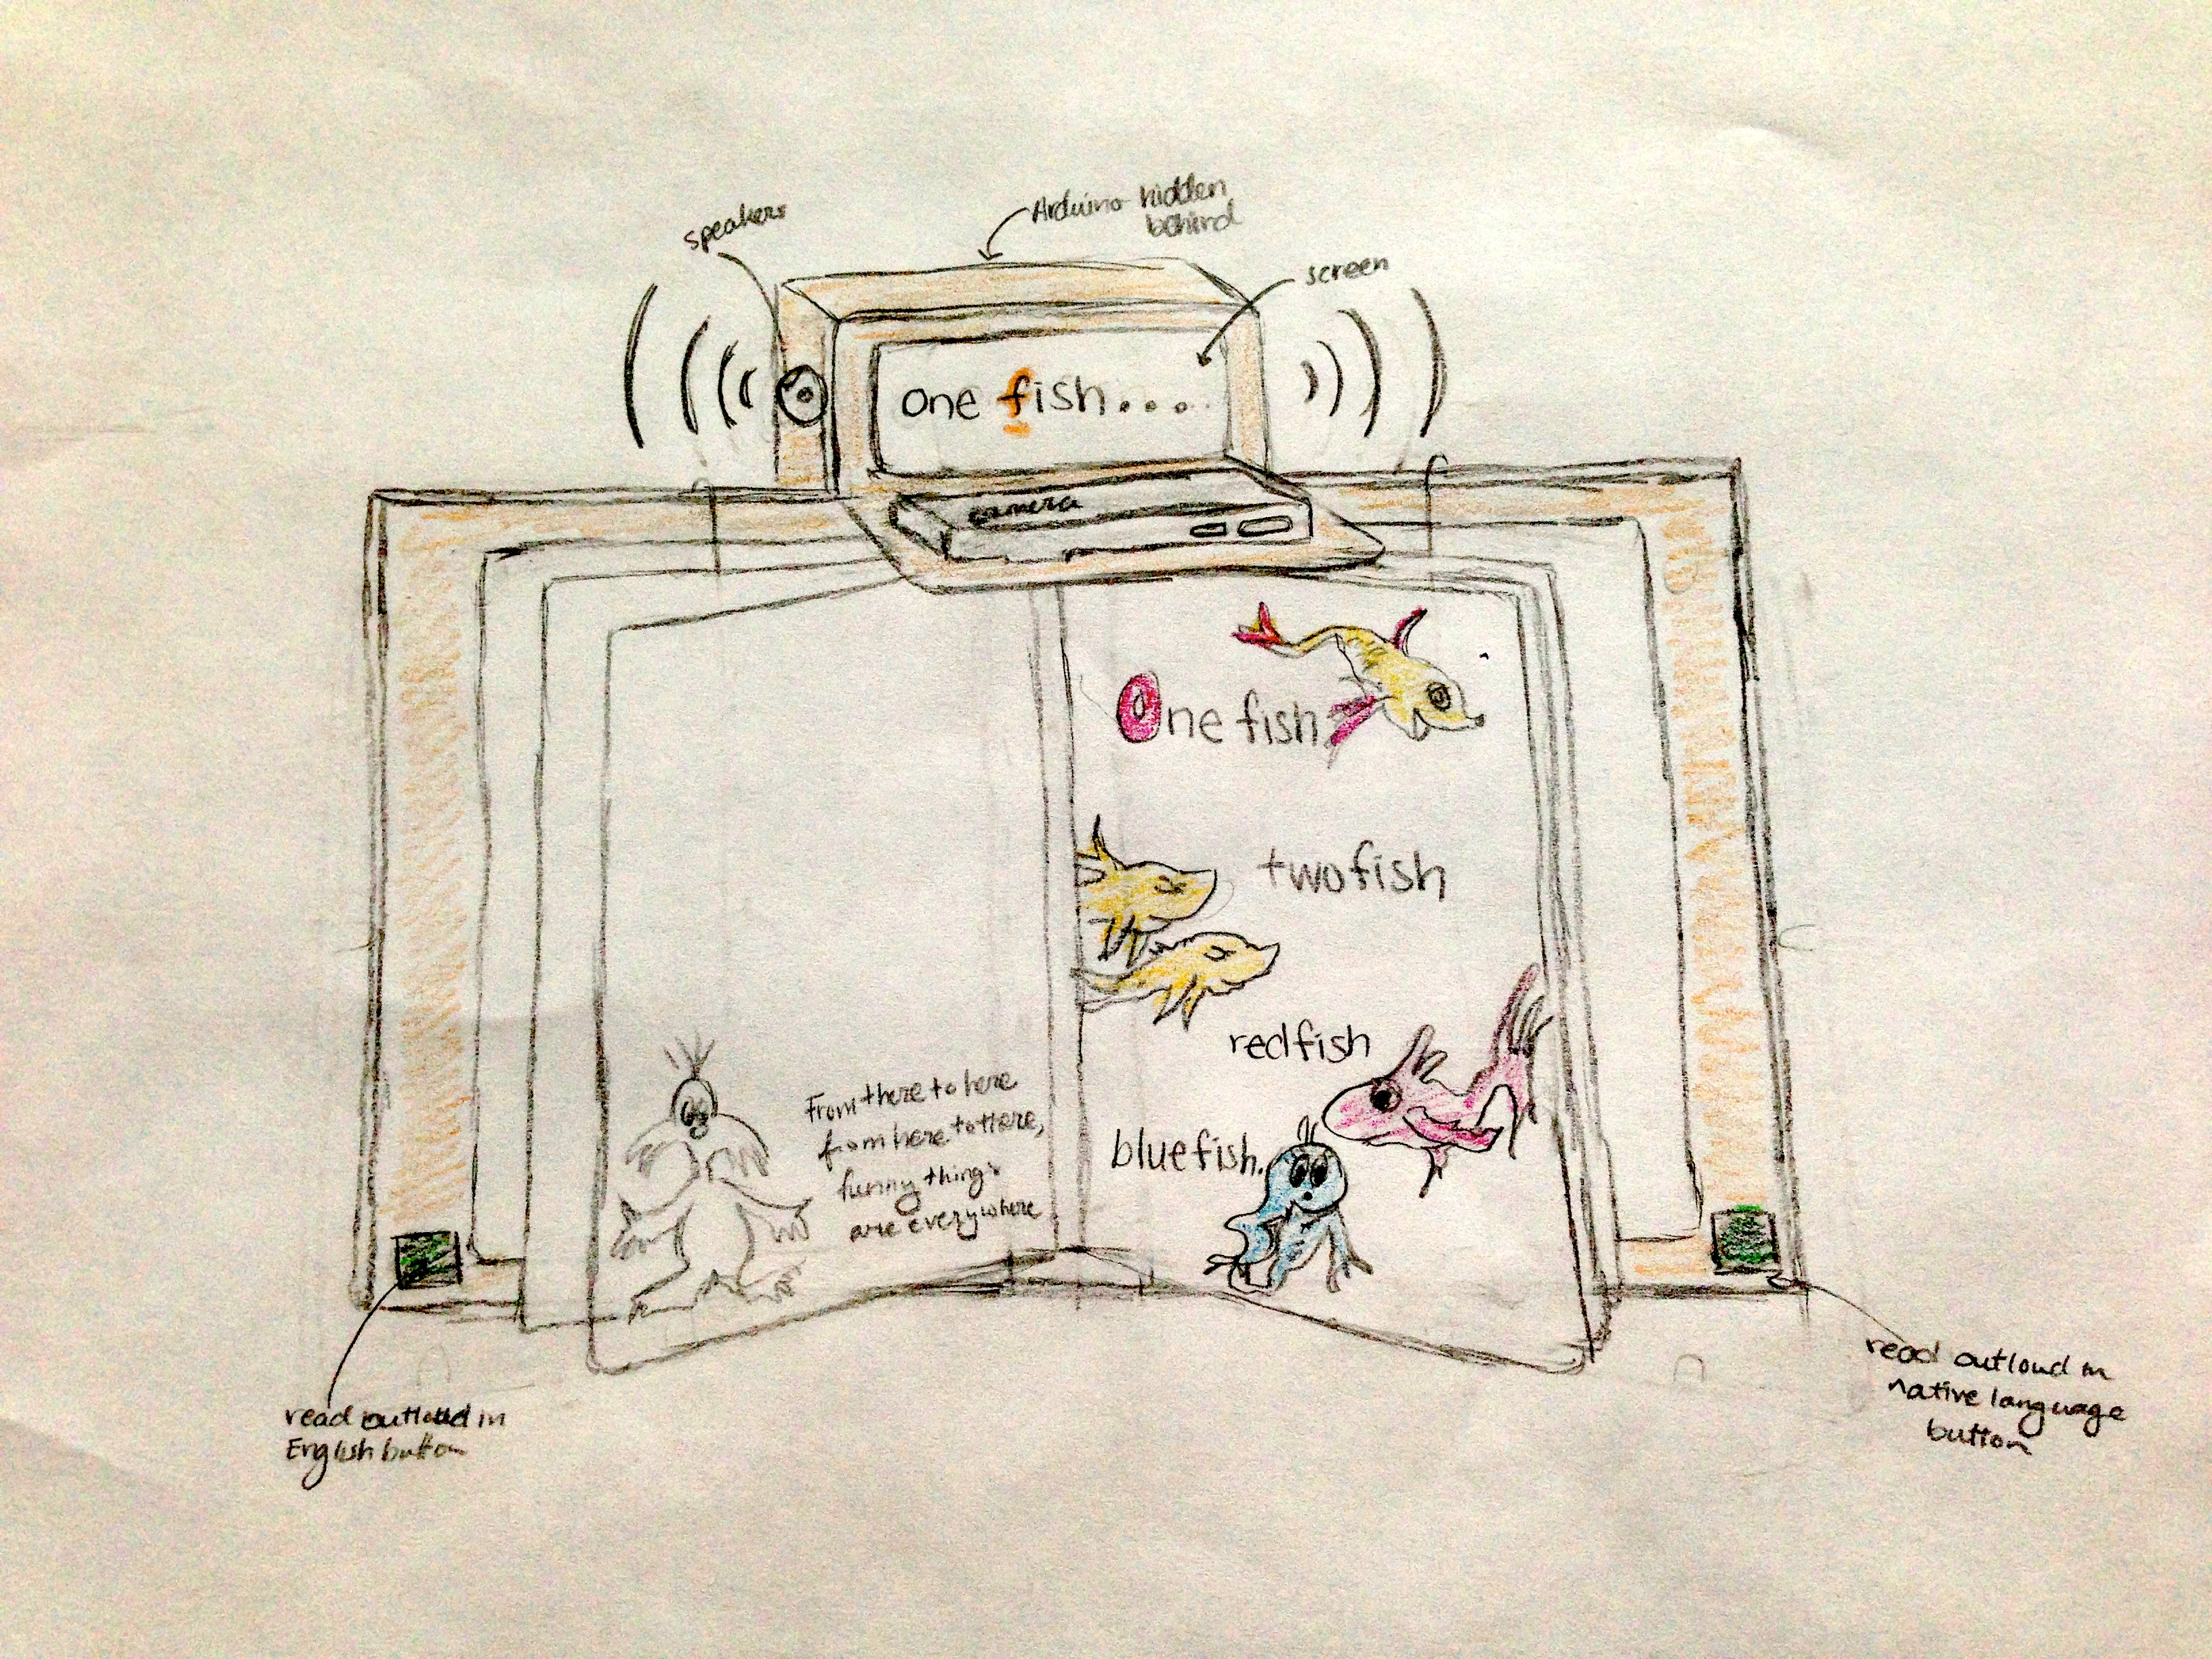 speakers
Arduino hidden
behind
screen
one fish....
camera
One fish
two fish
red fish
blue fish.
From there to here
from here to there,
funny things
are everywhere
read outloud in
English button
read outloud in
native language
button